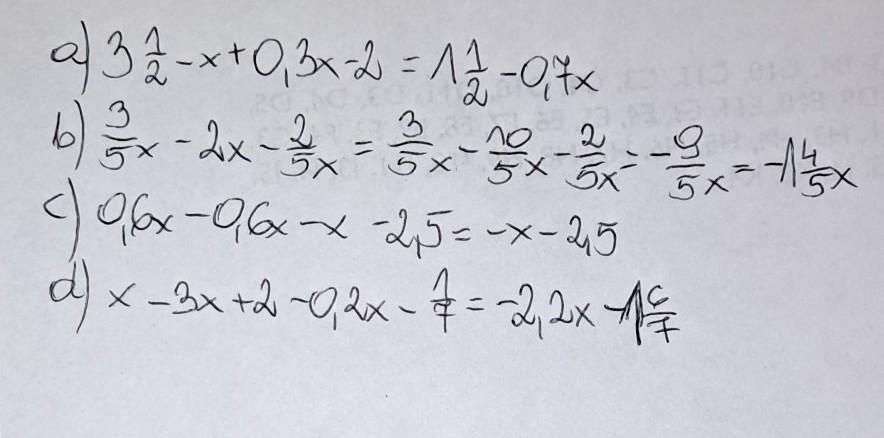 a) 3 1/2 - x + 0,3x - 2 = 1 1/2 - 0,7x
b) 3/5 x - 2x - 2/5 x = 3/5 x - 10/5 x - 2/5 x = -9/5 x = -1 4/5 x
c) 0,6x - 0,6x - x - 2,5 = -x - 2,5
d) x - 3x + 2 - 0,2x - 1/7 = -2,2x - 1 6/7